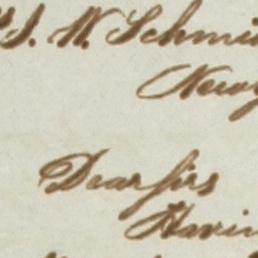 J. W. Schmi
New
Dear sirs
Havin